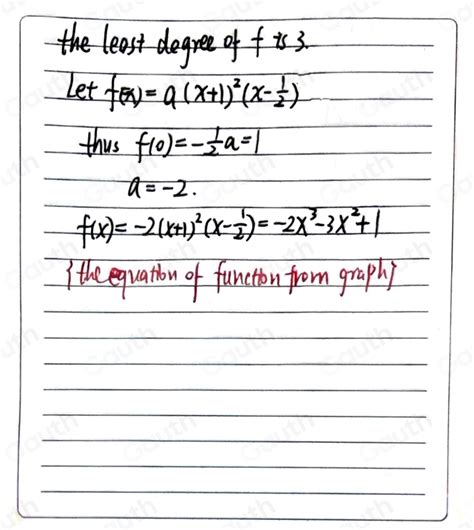 the least degree of f is 3.
Let f(x) = a(x+1)²(x-1/2)
thus f(0) = -1/2 a = 1
a = -2.
f(x) = -2(x+1)²(x-1/2) = -2x³-3x²+1
{the equation of function from graph}